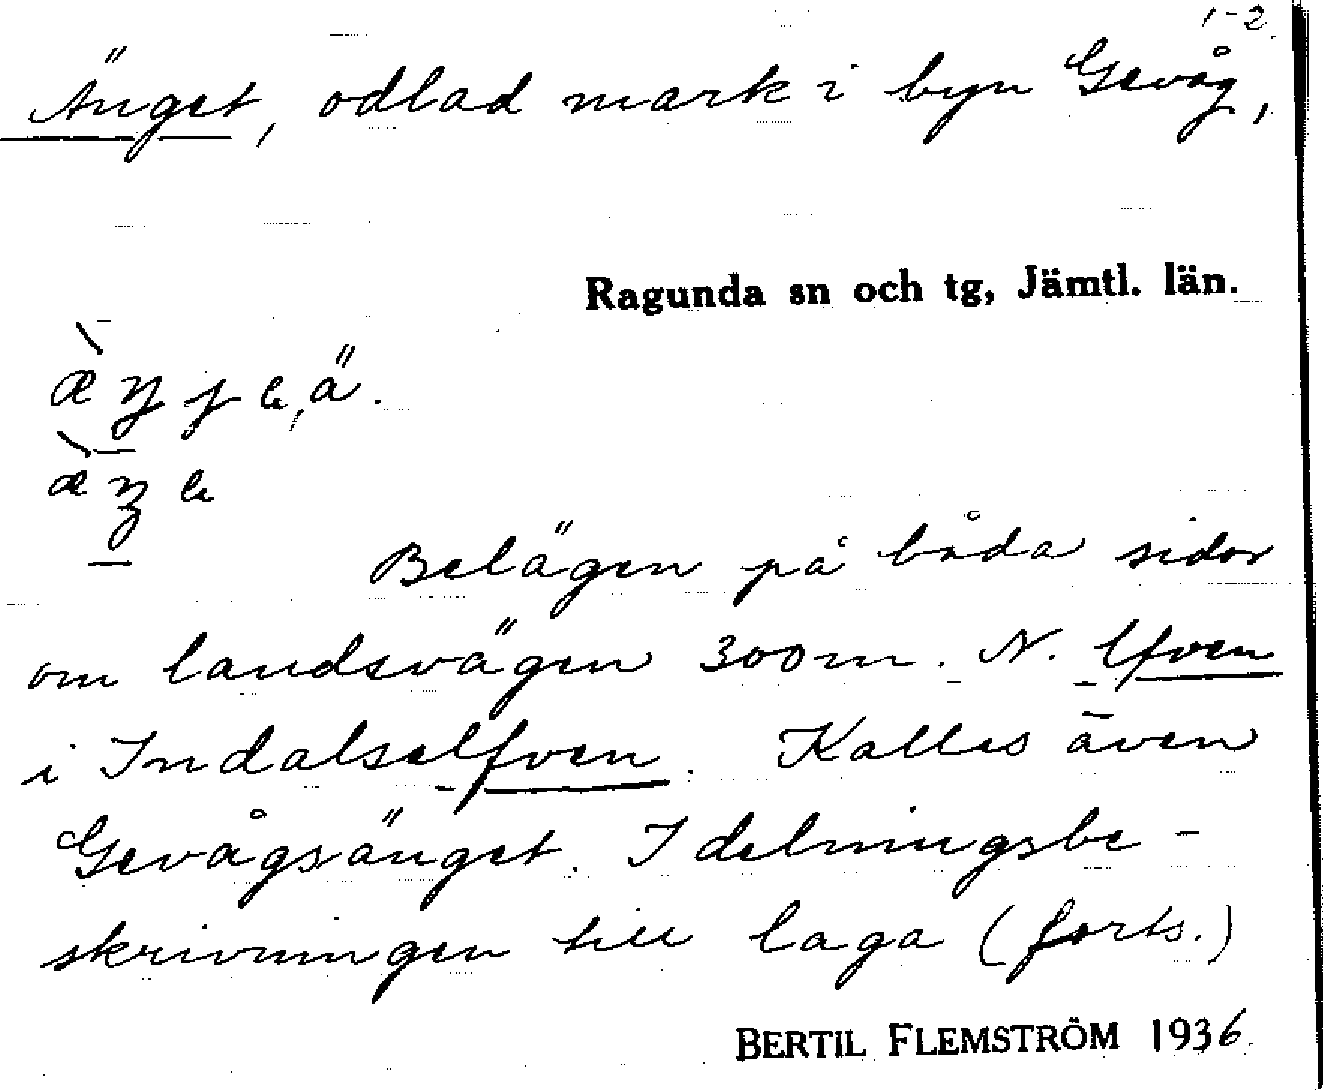 1-2.
Änget, odlad mark i byn Gevåg,
Ragunda sn och tg, Jämtl. län.
Belägen på båda sidor
om landsvägen 300 m. N. lfven
i Indalselfven. Kallas även
Gevågsänget. I delningsbe-
skrivningen till laga (forts.)
BERTIL FLEMSTRÖM 1936.